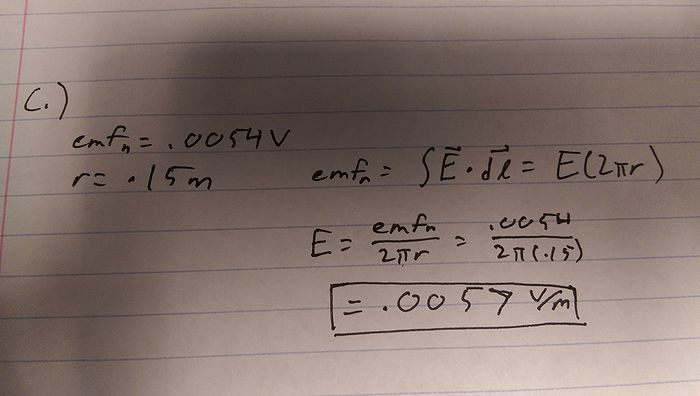 C.)
emfₙ = .0054V
r = .15m
emfₙ = ∫E⃗ • d⃗l = E(2πr)
E = emfₙ/2πr = .0054/2π(.15)
= .0057 V/m